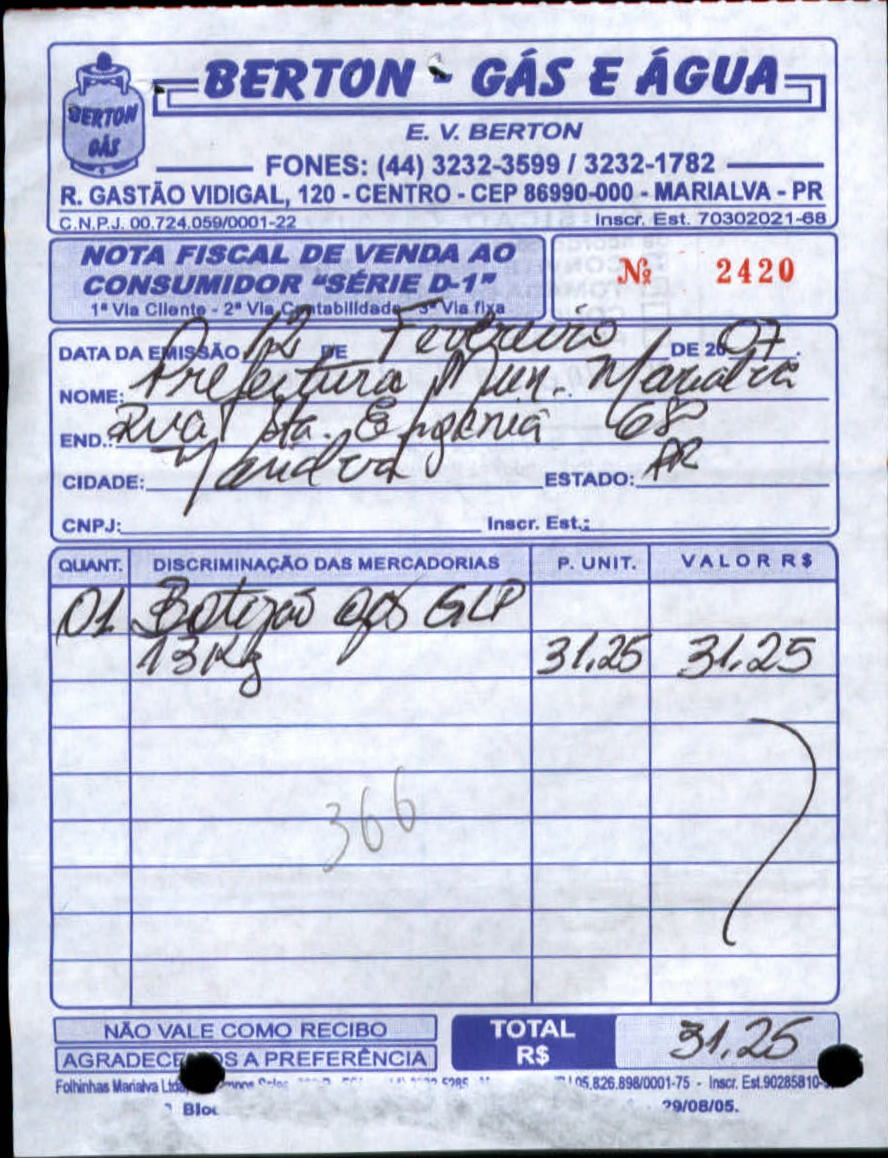 BERTON GÁS
BERTON - GÁS E ÁGUA
E. V. BERTON
FONES: (44) 3232-3599 / 3232-1782
R. GASTÃO VIDIGAL, 120 - CENTRO - CEP 86990-000 - MARIALVA - PR
C.N.P.J. 00.724.059/0001-22 Inscr. Est. 70302021-68
NOTA FISCAL DE VENDA AO
CONSUMIDOR "SÉRIE D-1"
1ª Via Cliente - 2ª Via Contabilidade - 3ª Via fixa
Nº 2420
DATA DA EMISSÃO 12 DE Fevereiro DE 2007.
NOME: Prefectura Mun. Marialva
END.: Rua Sta. Efigenia 680
CIDADE: Marialva ESTADO: PR
CNPJ: Inscr. Est.:
QUANT. DISCRIMINAÇÃO DAS MERCADORIAS P. UNIT. VALOR R$
01 Botijão gás GLP
13Kg 31,25 31,25
366
NÃO VALE COMO RECIBO
AGRADECEMOS A PREFERÊNCIA
TOTAL R$ 31,25
Folhinhas Marialva Ltda 05.826.898/0001-75 - Inscr. Est.90285810
29/08/05.